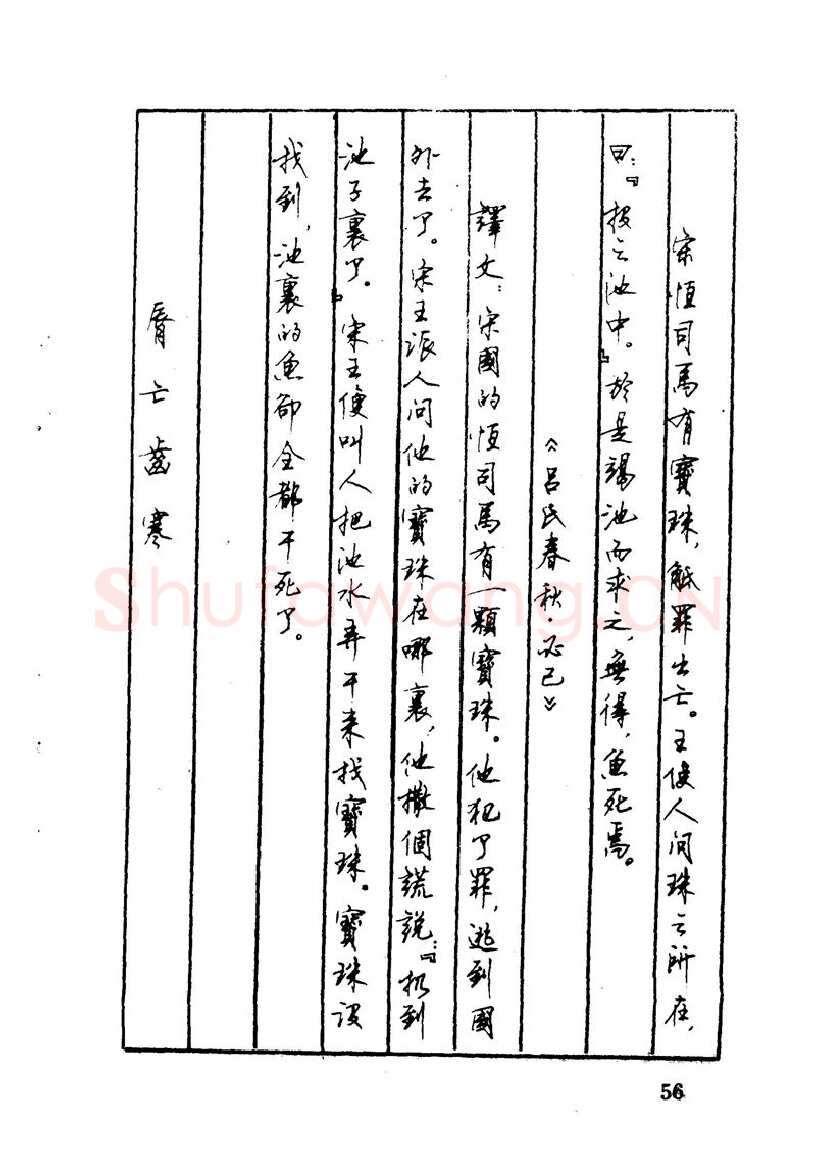 宋恒司馬有寶珠，觝罪出亡。王使人问珠之所在，
曰：『投之池中。』於是竭池而求之，無得，鱼死焉。
《吕氏春秋·必己》
譯文：宋國的恒司馬有一顆寶珠。他犯了罪，逃到國
外去了。宋王派人问他的寶珠在哪裏，他撒個謊説：『扔到
池子裏了。』宋王便叫人把池水弄干来找寶珠。寶珠没
找到，池裏的鱼卻全都干死了。
脣亡齒寒
Shufawang.CN
56